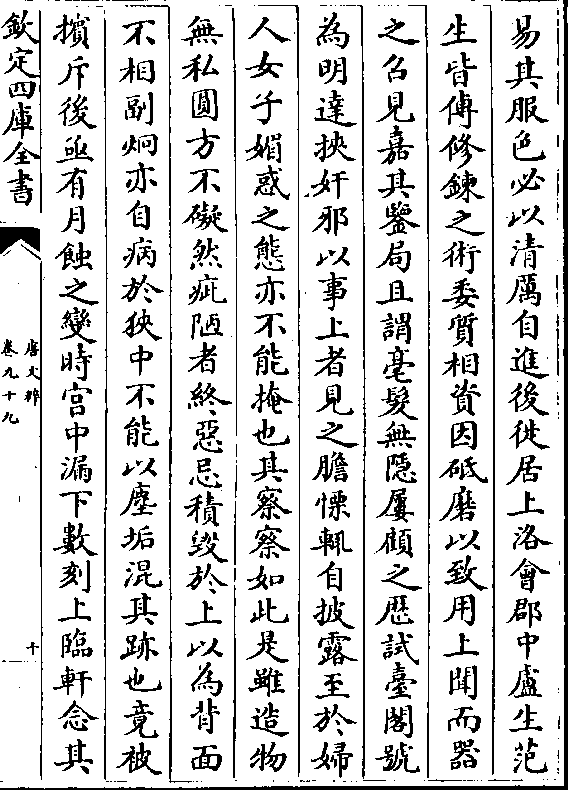 易其服色必以清厲自進後徙居上洛會郡中盧生范
生皆傳修鍊之術委質相資因砥磨以致用上聞而器
之召見嘉其鑒局且謂毫髮無隱屢顧之歴試臺閣號
為明達挾奸邪以事上者見之膽慄輒自披露至於婦
人女子媚惑之態亦不能掩也其察察如此是雖造物
無私圓方不礙然疵陋者終惡忌積毀於上以為背面
不相副炯亦自病於狹中不能以塵垢混其跡也竟被
擯斥後亟有月蝕之變時宮中漏下數刻上臨軒念其
欽定四庫全書
唐文粹
卷九十九
十